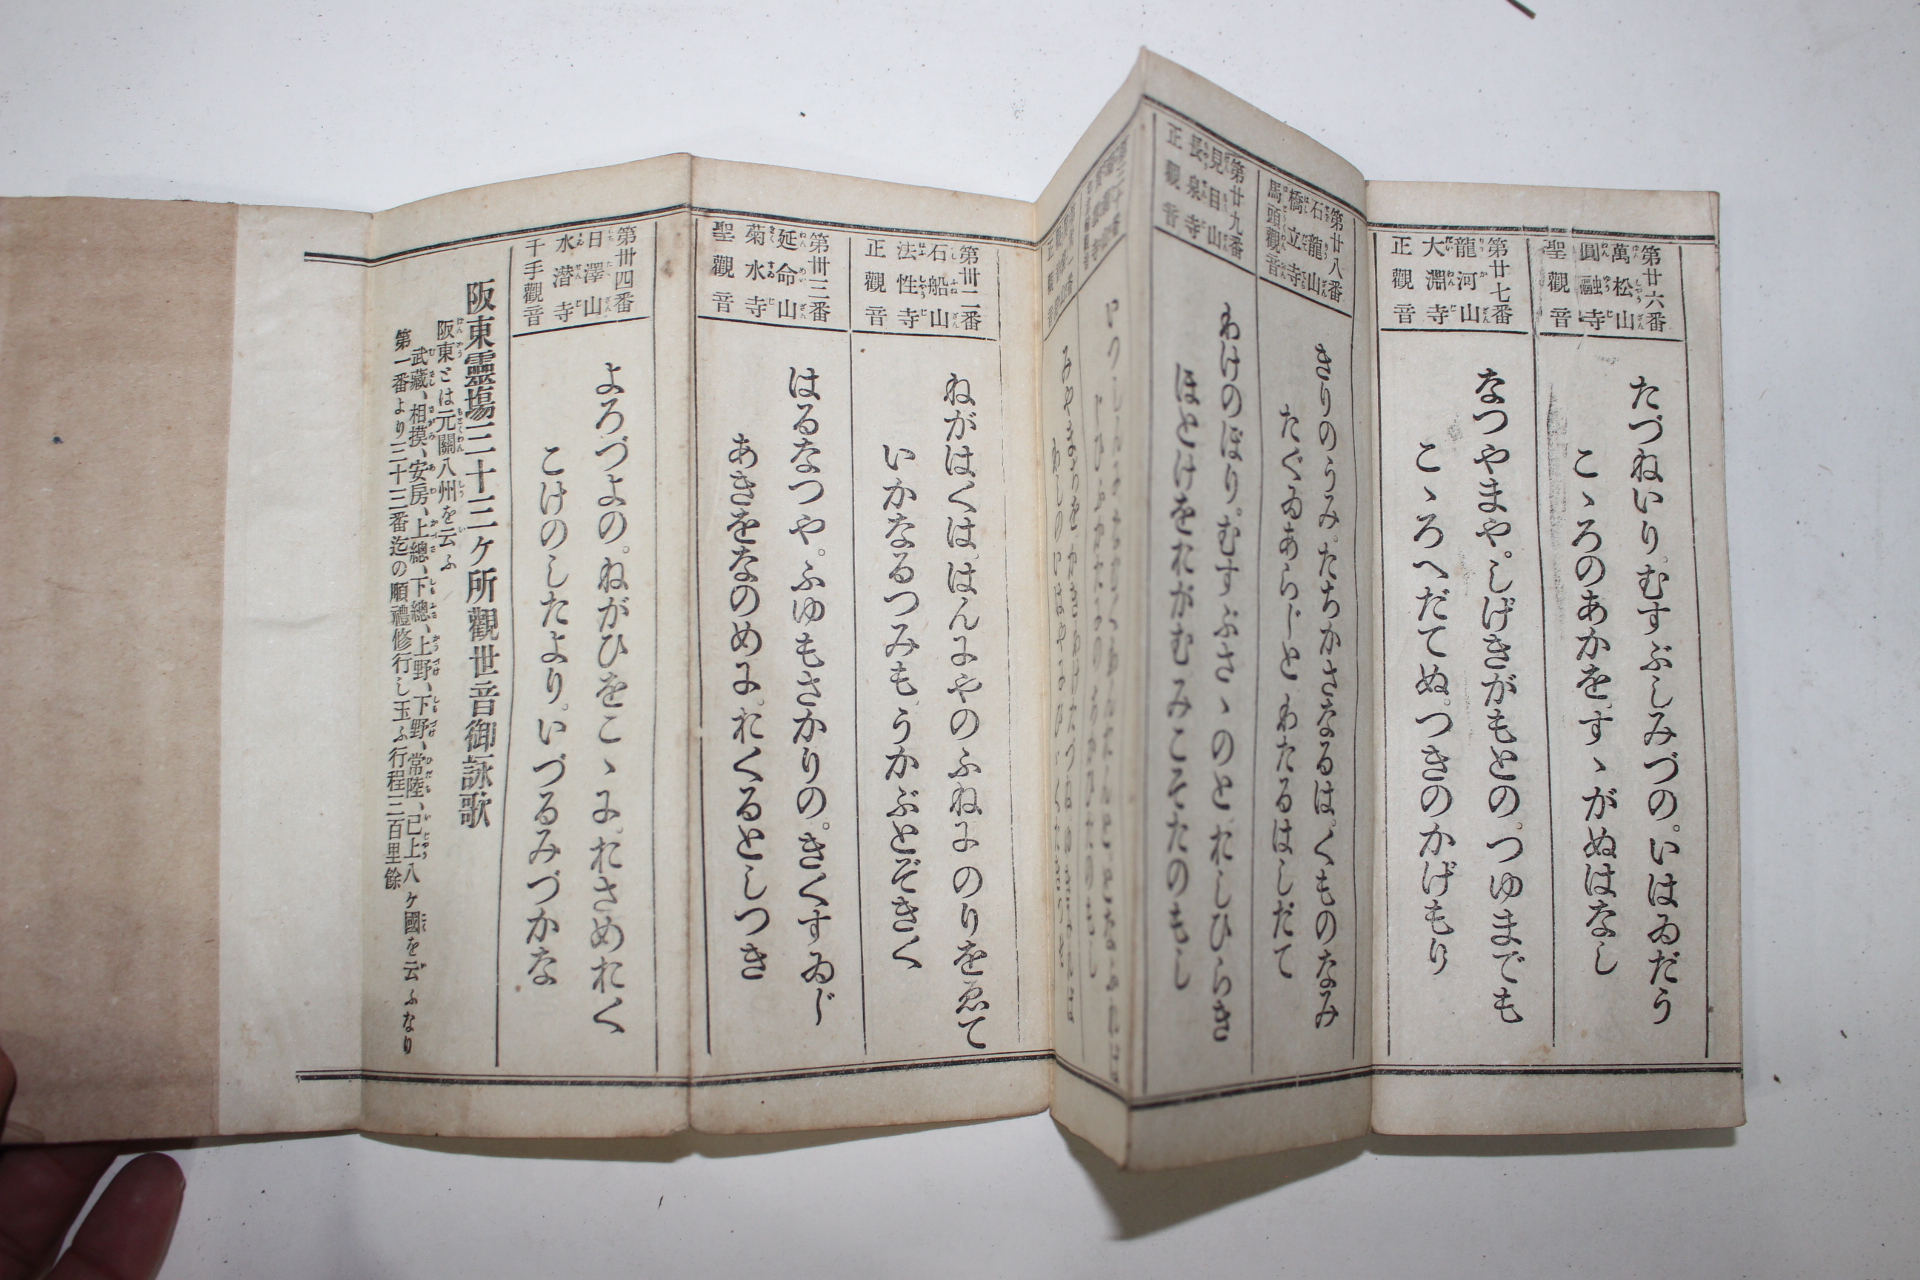 第廿六番
萬松山
圓融寺
聖觀音
たづねいり。むすぶしみづの。いはゐだう
こゝろのあかを。すゝがぬはなし
第廿七番
龍河山
大淵寺
正觀音
なつやまや。しげきがもとの。つゆまでも
こゝろへだてぬ。つきのかげもり
第廿八番
石龍山
橋立寺
馬頭觀音
きりのうみ。たちかさなるは。くものなみ
たぐゐあらじと わたるはしだて
第廿九番
見目山
長泉寺
正觀音
わけのぼり。むすぶさゝのと。れしひらき
ほとけをれがむ みこそたのもし
第卅二番
石船山
法性寺
正觀音
ねがはくは。はんにやのふねにのりをゑて
いかなるつみも。うかぶとぞきく
第卅三番
延命山
菊水寺
聖觀音
はるなつや。ふゆもさかりの。きくすゐじ
あきをなのめに。れくるとしつき
第卅四番
日澤山
水潜寺
千手觀音
よろづよの。ねがひをこゝに。れさめれく
こけのしたより。いづるみづかな
阪東靈塲三十三ケ所觀世音御詠歌
阪東とは元關八州を云ふ
武藏、相摸、安房、上總、下總、上野、下野、常陸、已上八ケ國を云ふなり
第一番より三十三番迄の順禮修行し玉ふ行程三百里餘